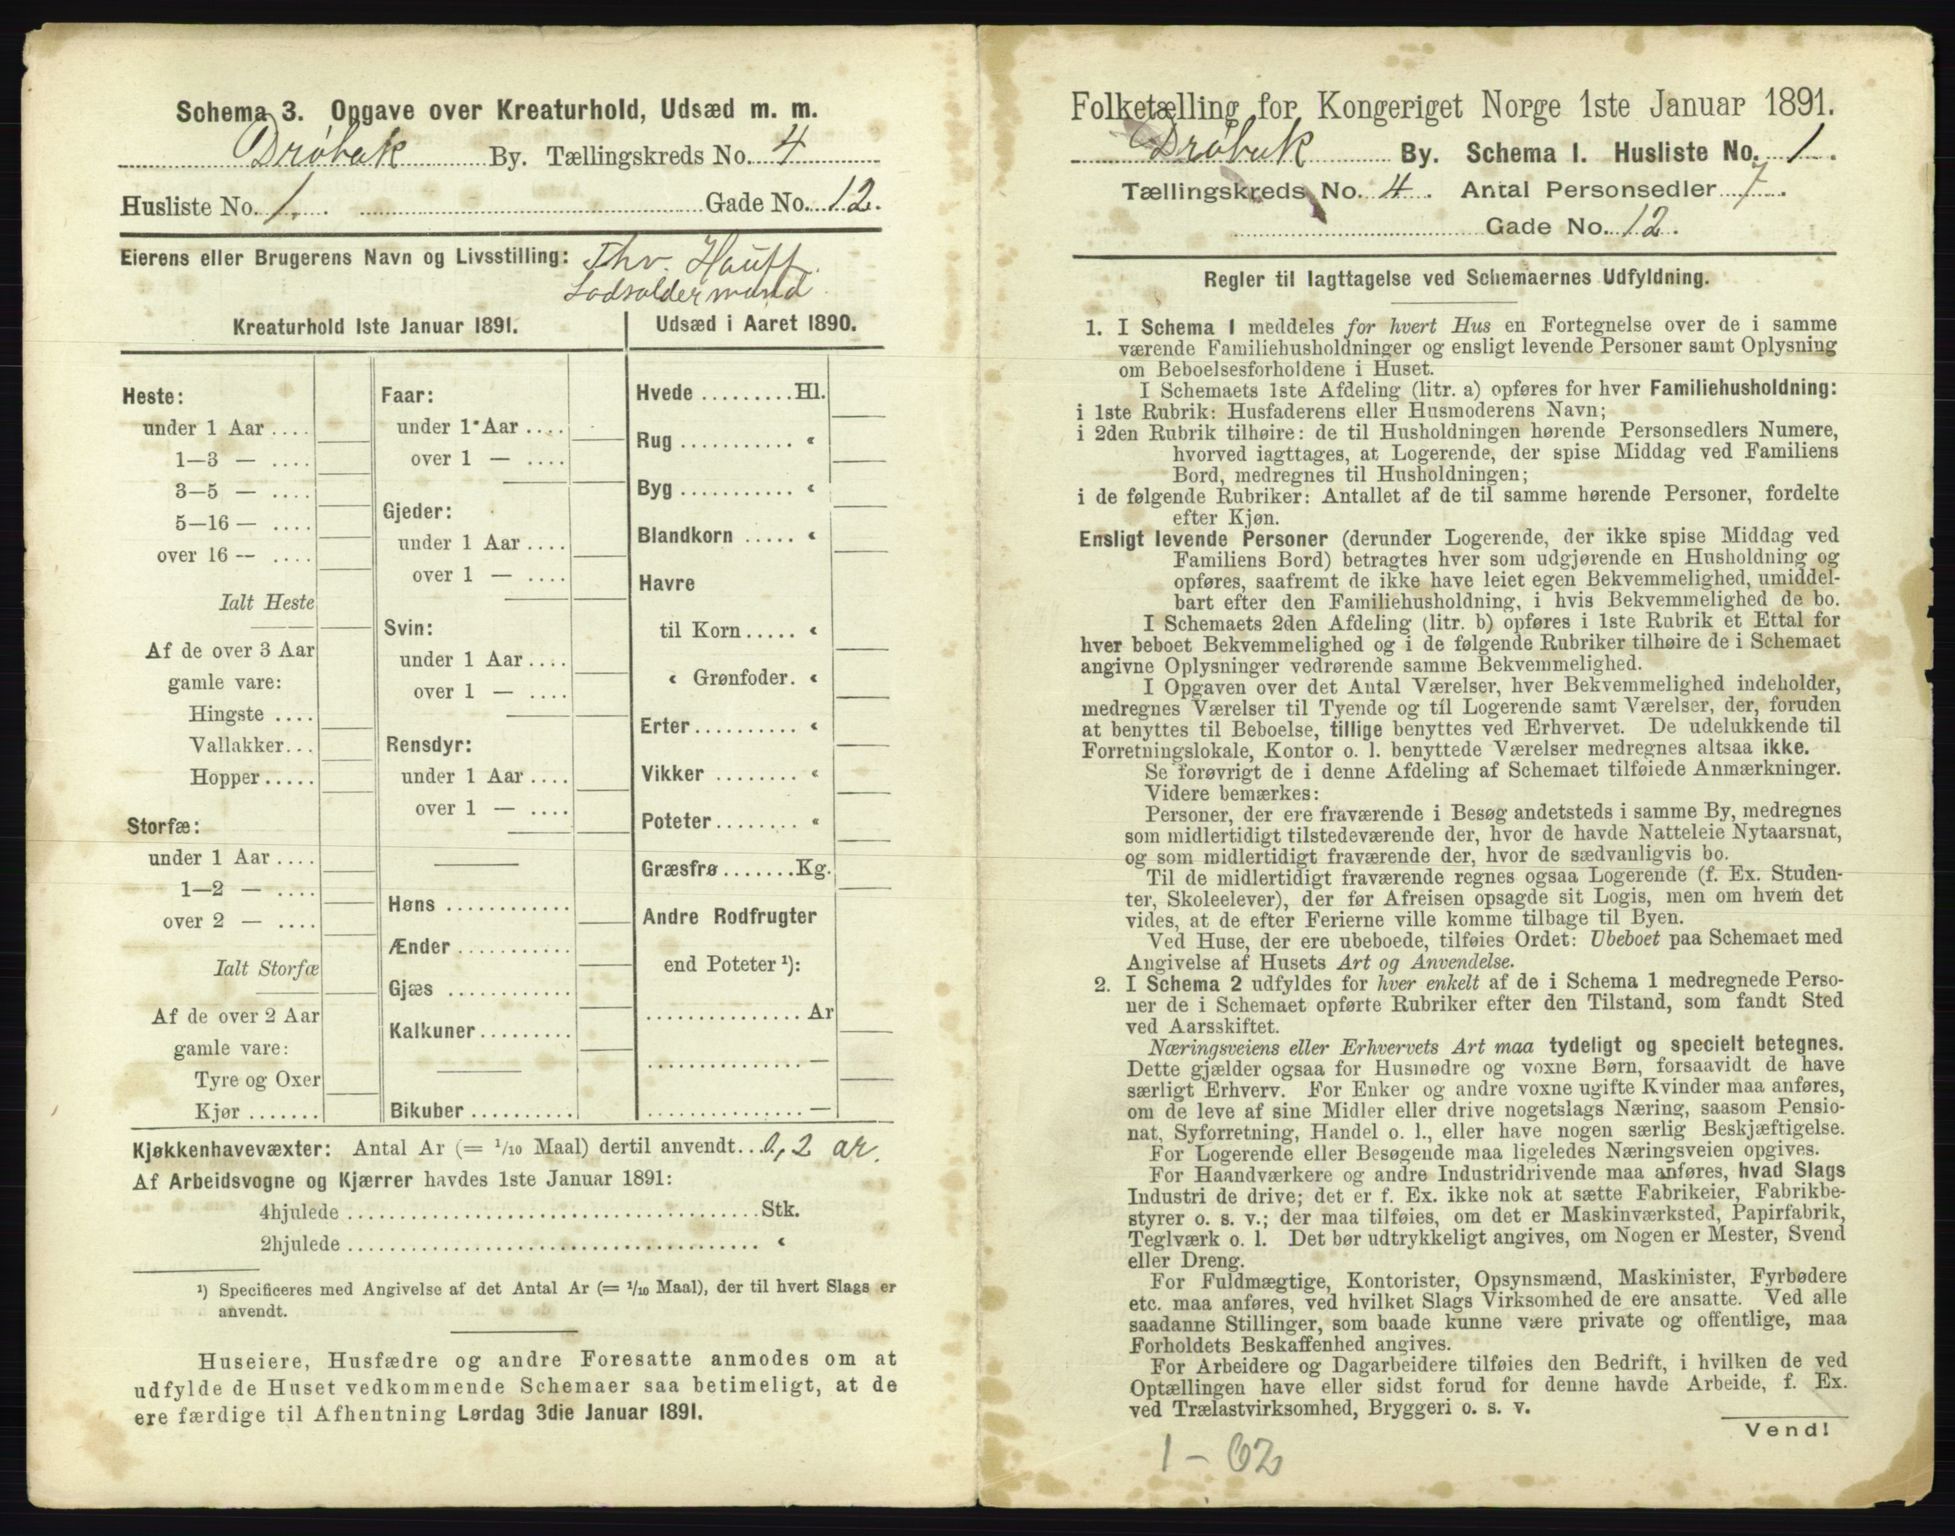 Schema 3. Opgave over Kreaturhold, Udsæd m. m.
Drøbak By. Tællingskreds No. 4
Husliste No. 1. Gade No. 12.
Eierens eller Brugerens Navn og Livsstilling: Thv. Hauff.
Lodsoldermand.
Kreaturhold 1ste Januar 1891.
Heste:
under 1 Aar ....
1—3 — ....
3—5 — ....
5—16 — ....
over 16 — ....
Ialt Heste
Af de over 3 Aar
gamle vare:
Hingste ....
Vallakker...
Hopper.....
Storfæ:
under 1 Aar ....
1—2 — ....
over 2 — ....
Ialt Storfæ
Af de over 2 Aar
gamle vare:
Tyre og Oxer
Kjør .......
Faar:
under 1 Aar ....
over 1 — ....
Gjeder:
under 1 Aar ....
over 1 — ....
Svin:
under 1 Aar ....
over 1 — ....
Rensdyr:
under 1 Aar ....
over 1 — ....
Høns ............
Ænder ...........
Gjæs ............
Kalkuner.........
Bikuber ..........
Udsæd i Aaret 1890.
Hvede .........Hl.
Rug ........... «
Byg ........... «
Blandkorn ..... «
Havre
til Korn..... «
« Grønfoder. «
Erter .......... «
Vikker ......... «
Poteter........ «
Græsfrø .......Kg.
Andre Rodfrugter
end Poteter ¹):
............... Ar
............... —
............... —
Kjøkkenhavevæxter: Antal Ar (= 1/10 Maal) dertil anvendt.. 0,2 ar.
Af Arbeidsvogne og Kjærrer havdes 1ste Januar 1891:
4hjulede ....................................... Stk.
2hjulede ....................................... «
¹) Specificeres med Angivelse af det Antal Ar (= 1/10 Maal), der til hvert Slags er
anvendt.
Huseiere, Husfædre og andre Foresatte anmodes om at
udfylde de Huset vedkommende Schemaer saa betimeligt, at de
ere færdige til Afhentning Lørdag 3die Januar 1891.
Folketælling for Kongeriget Norge 1ste Januar 1891.
Drøbak By. Schema 1. Husliste No. 1.
Tællingskreds No. 4. Antal Personsedler 7.
Gade No. 12.
Regler til Iagttagelse ved Schemaernes Udfyldning.
1. I Schema 1 meddeles for hvert Hus en Fortegnelse over de i samme
værende Familiehusholdninger og ensligt levende Personer samt Oplysning
om Beboelsesforholdene i Huset.
I Schemaets 1ste Afdeling (litr. a) opføres for hver Familiehusholdning:
i 1ste Rubrik: Husfaderens eller Husmoderens Navn;
i 2den Rubrik tilhøire: de til Husholdningen hørende Personsedlers Numere,
hvorved iagttages, at Logerende, der spise Middag ved Familiens
Bord, medregnes til Husholdningen;
i de følgende Rubriker: Antallet af de til samme hørende Personer, fordelte
efter Kjøn.
Ensligt levende Personer (derunder Logerende, der ikke spise Middag ved
Familiens Bord) betragtes hver som udgjørende en Husholdning og
opføres, saafremt de ikke have leiet egen Bekvemmelighed, umiddel-
bart efter den Familiehusholdning, i hvis Bekvemmelighed de bo.
I Schemaets 2den Afdeling (litr. b) opføres i 1ste Rubrik et Ettal for
hver beboet Bekvemmelighed og i de følgende Rubriker tilhøire de i Schemaet
angivne Oplysninger vedrørende samme Bekvemmelighed.
I Opgaven over det Antal Værelser, hver Bekvemmelighed indeholder,
medregnes Værelser til Tyende og til Logerende samt Værelser, der, foruden
at benyttes til Beboelse, tillige benyttes ved Erhvervet. De udelukkende til
Forretningslokale, Kontor o. l. benyttede Værelser medregnes altsaa ikke.
Se forøvrigt de i denne Afdeling af Schemaet tilføiede Anmærkninger.
Videre bemærkes:
Personer, der ere fraværende i Besøg andetsteds i samme By, medregnes
som midlertidigt tilstedeværende der, hvor de havde Natteleie Nytaarsnat,
og som midlertidigt fraværende der, hvor de sædvanligvis bo.
Til de midlertidigt fraværende regnes ogsaa Logerende (f. Ex. Studen-
ter, Skoleelever), der før Afreisen opsagde sit Logis, men om hvem det
vides, at de efter Ferierne ville komme tilbage til Byen.
Ved Huse, der ere ubeboede, tilføies Ordet: Ubeboet paa Schemaet med
Angivelse af Husets Art og Anvendelse.
2. I Schema 2 udfyldes for hver enkelt af de i Schema 1 medregnede Perso-
ner de i Schemaet opførte Rubriker efter den Tilstand, som fandt Sted
ved Aarsskiftet.
Næringsveiens eller Erhvervets Art maa tydeligt og specielt betegnes.
Dette gjælder ogsaa for Husmødre og voxne Børn, forsaavidt de have
særligt Erhverv. For Enker og andre voxne ugifte Kvinder maa anføres,
om de leve af sine Midler eller drive nogetslags Næring, saasom Pensio-
nat, Syforretning, Handel o. l., eller have nogen særlig Beskjæftigelse.
For Logerende eller Besøgende maa ligeledes Næringsveien opgives.
For Haandværkere og andre Industridrivende maa anføres, hvad Slags
Industri de drive; det er f. Ex. ikke nok at sætte Fabrikeier, Fabrikbe-
styrer o. s. v.; der maa tilføies, om det er Maskinværksted, Papirfabrik,
Teglværk o. l. Det bør udtrykkeligt angives, om Nogen er Mester, Svend
eller Dreng.
For Fuldmægtige, Kontorister, Opsynsmænd, Maskinister, Fyrbødere
etc. maa anføres, ved hvilket Slags Virksomhed de ere ansatte. Ved alle
saadanne Stillinger, som baade kunne være private og offentlige, maa
Forholdets Beskaffenhed angives.
For Arbeidere og Dagarbeidere tilføies den Bedrift, i hvilken de ved
Optællingen have eller sidst forud for denne havde Arbeide, f. Ex.
ved Trælastvirksomhed, Bryggeri o. s. v.
Vend!
1 - 62